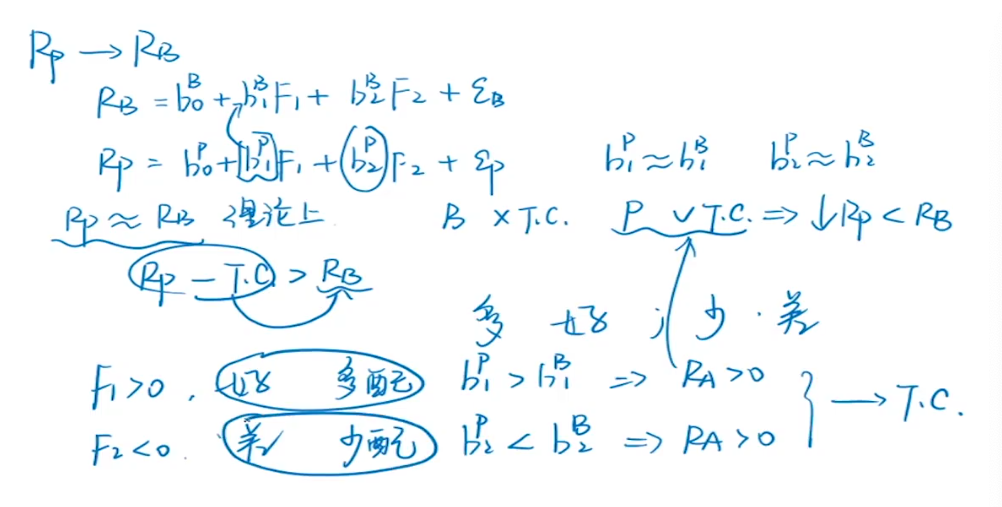 Rp → RB
RB = b₀ᴮ + b₁ᴮF₁ + b₂ᴮF₂ + εB
Rp = b₀ᴾ + b₁ᴾF₁ + b₂ᴾF₂ + εp b₁ᴾ≈b₁ᴮ b₂ᴾ≈b₂ᴮ
Rp ≈ RB 理论上 B × T.C. P ∨ T.C. ⇒ ↓Rp < RB
Rp − T.C. > RB
多 好 ; 少 · 差
F₁>0 , 好 多配 b₁ᴾ > b₁ᴮ ⇒ RA>0
F₂<0 差 少配 b₂ᴾ < b₂ᴮ ⇒ RA>0 } → T.C.